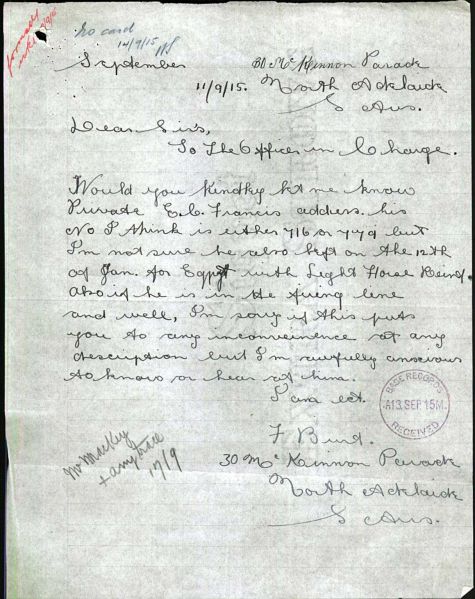 No card
14/9/15
September
30 Mc Kinnon Parade
11/9/15. North Adelaide
S Aus.
Dear Sirs,
To The Officer in Charge.
Would you kindley let me know
Private E. C. Francis address. his
No I think is either 716 or 779 but
I'm not sure he also left on the 12th
of Jan. for Egypt with Light Horse Reinf.
Also if he is in the firing line
and well, I'm sorry if this puts
you to any inconvenience of any
description but I'm awfully anscious
to know or hear of him.
I am ect.
BASE RECORDS
A13.SEP.15M.
RECEIVED
F Bird.
30 Mc Kinnon Parade
North Adelaide
S Aus.
Mr Mackey
17/9